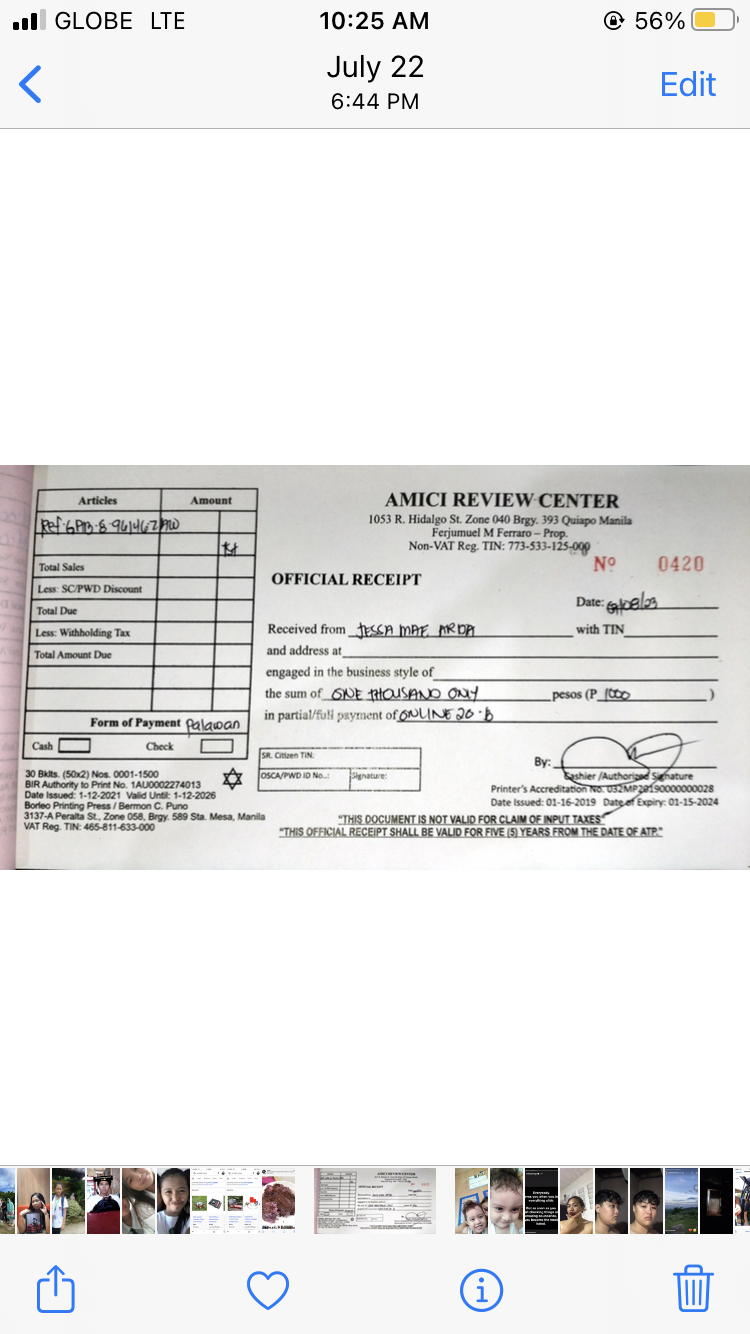 GLOBE LTE 10:25 AM 56%
July 22
6:44 PM
Edit
Articles Amount
1st
Total Sales
Less: SC/PWD Discount
Total Due
Less: Withholding Tax
Total Amount Due
Form of Payment Palawan
Cash Check
30 Bklts. (50x2) Nos. 0001-1500
BIR Authority to Print No. 1AU0002274013
Date Issued: 1-12-2021 Valid Until: 1-12-2026
Borleo Printing Press / Bermon C. Puno
3137-A Peralta St., Zone 058, Brgy. 589 Sta. Mesa, Manila
VAT Reg. TIN: 465-811-633-000
AMICI REVIEW CENTER
1053 R. Hidalgo St. Zone 040 Brgy. 393 Quiapo Manila
Ferjumuel M Ferraro – Prop.
Non-VAT Reg. TIN: 773-533-125-000
Nº 0420
OFFICIAL RECEIPT
Date:
Received from JESSA MAE ARDA with TIN
and address at
engaged in the business style of
the sum of ONE THOUSAND ONLY pesos (P 1000 )
in partial/full payment of ONLINE 20-B
SR. Citizen TIN:
OSCA/PWD ID No.: Signature:
By:
Cashier /Authorized Signature
Printer's Accreditation No. 032MP20190000000028
Date Issued: 01-16-2019 Date of Expiry: 01-15-2024
"THIS DOCUMENT IS NOT VALID FOR CLAIM OF INPUT TAXES"
"THIS OFFICIAL RECEIPT SHALL BE VALID FOR FIVE (5) YEARS FROM THE DATE OF ATP."